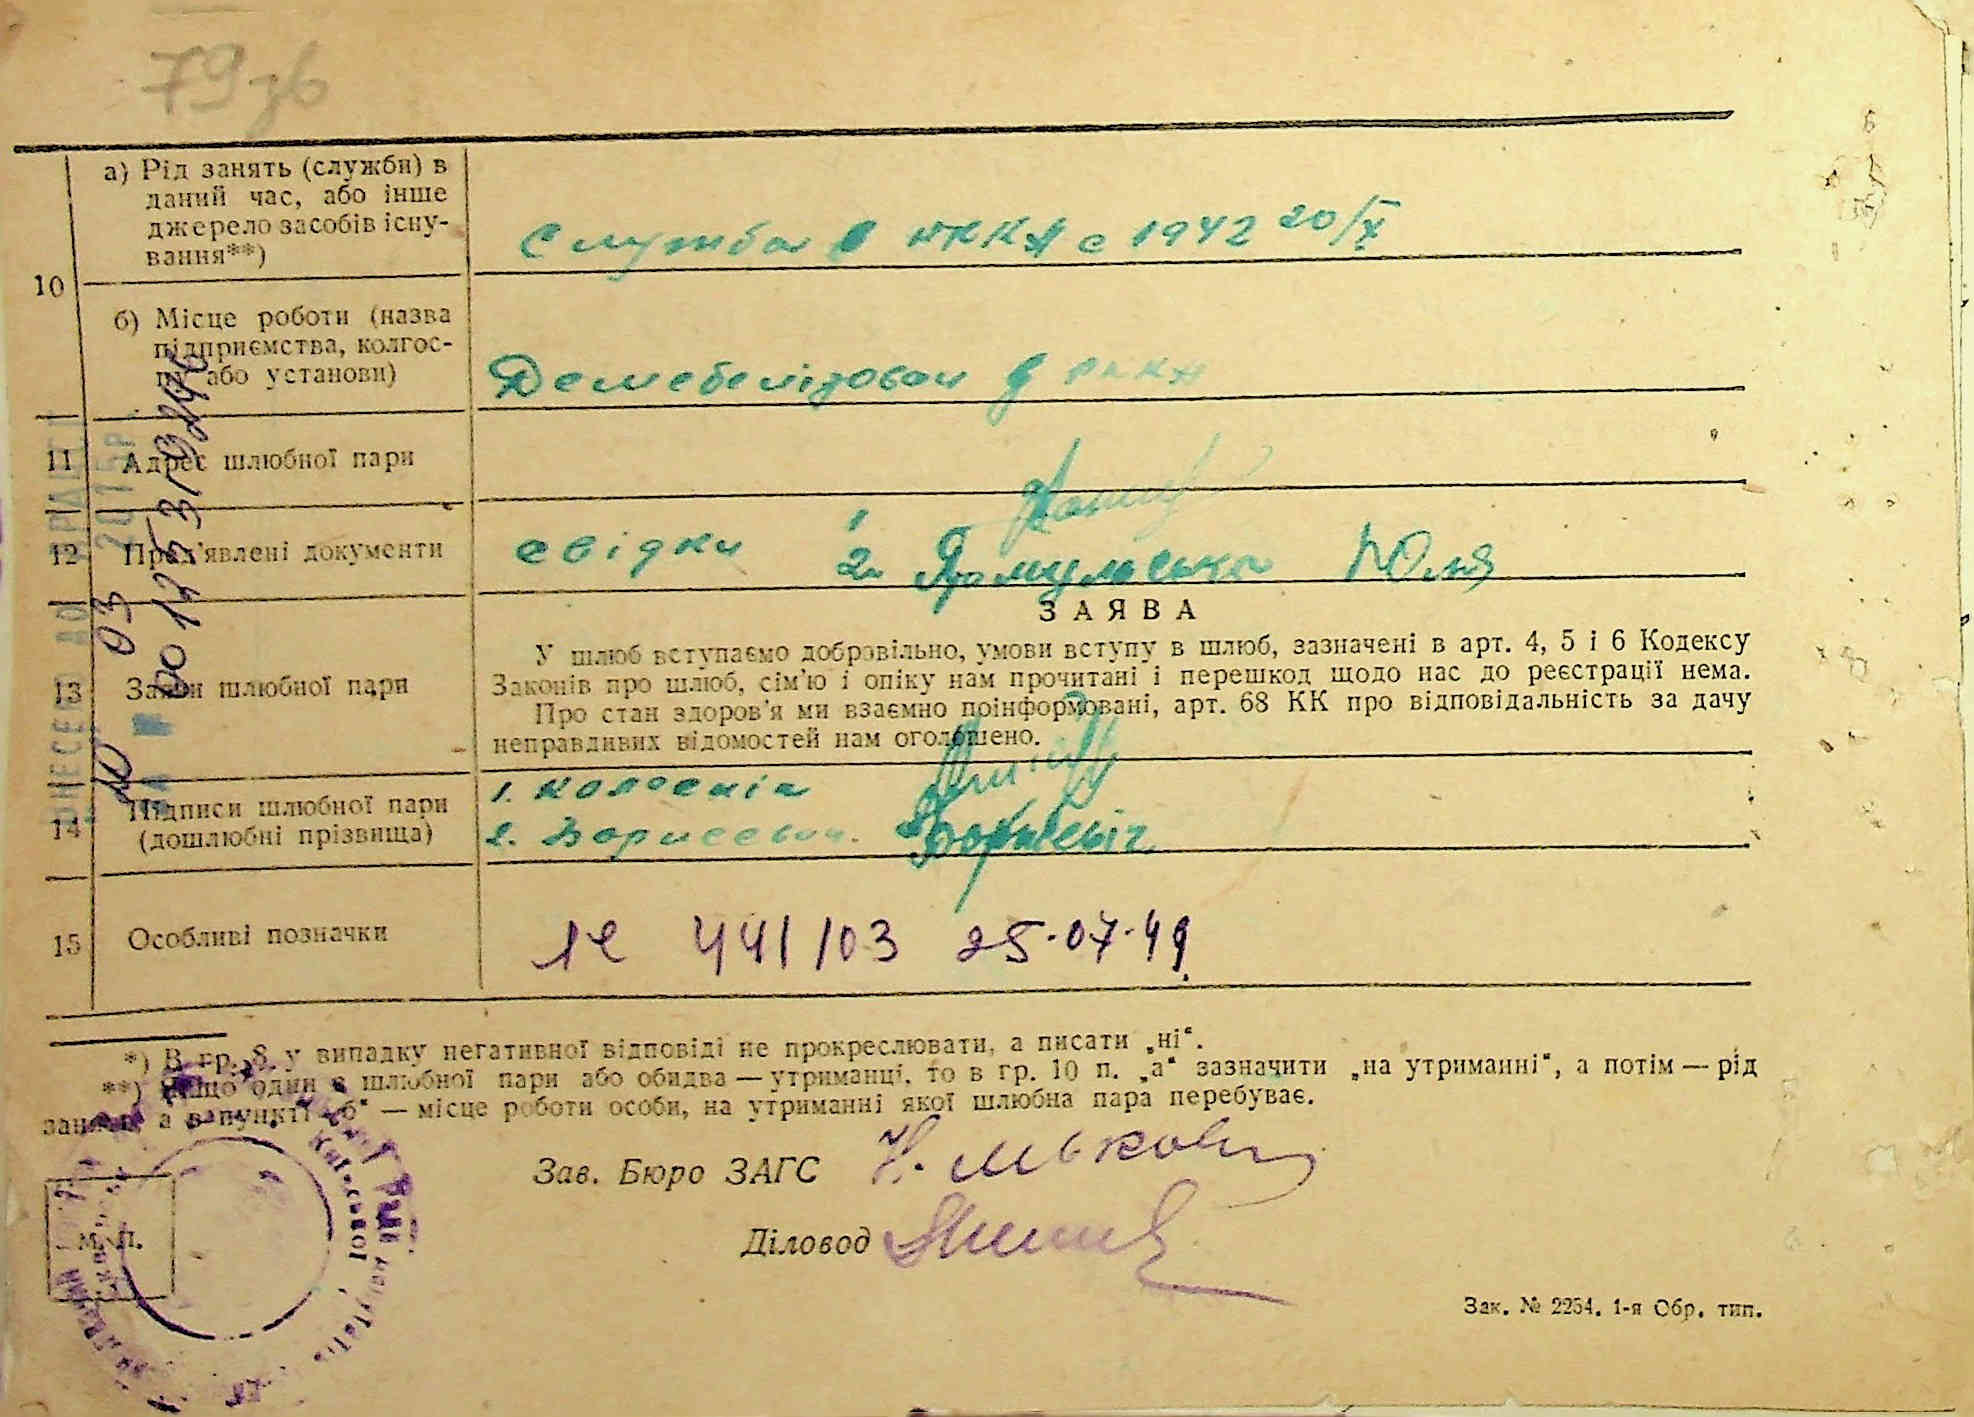 79 зв
а) Рід занять (служби) в
даний час, або інше
джерело засобів існу-
вання**)
Служба в РККА с 1942 20/X
10
б) Місце роботи (назва
підприємства, колгос-
пу або установи)
Демобелізован з РККА
11 Адрес шлюбної пари
12 Пред'явлені документи
свідки 1.
2. Юля
ЗАЯВА
13 Заяви шлюбної пари
У шлюб вступаємо добровільно, умови вступу в шлюб, зазначені в арт. 4, 5 і 6 Кодексу
Законів про шлюб, сім'ю і опіку нам прочитані і перешкод щодо нас до реєстрації нема.
Про стан здоров'я ми взаємно поінформовані, арт. 68 КК про відповідальність за дачу
неправдивих відомостей нам оголошено.
14 Підписи шлюбної пари
(дошлюбні прізвища)
1.
2. Борисевич. Борисевіч
15 Особливі позначки
441/03 25.07.49.
*) В гр. 8 у випадку негативної відповіді не прокреслювати, а писати „ні“.
**) Якщо один з шлюбної пари або обидва — утриманці, то в гр. 10 п. „а“ зазначити „на утриманні“, а потім — рід
занять, а в пункті „б“ — місце роботи особи, на утриманні якої шлюбна пара перебуває.
Зав. Бюро ЗАГС
Діловод
М. П.
Зак. № 2254. 1-я Обр. тип.